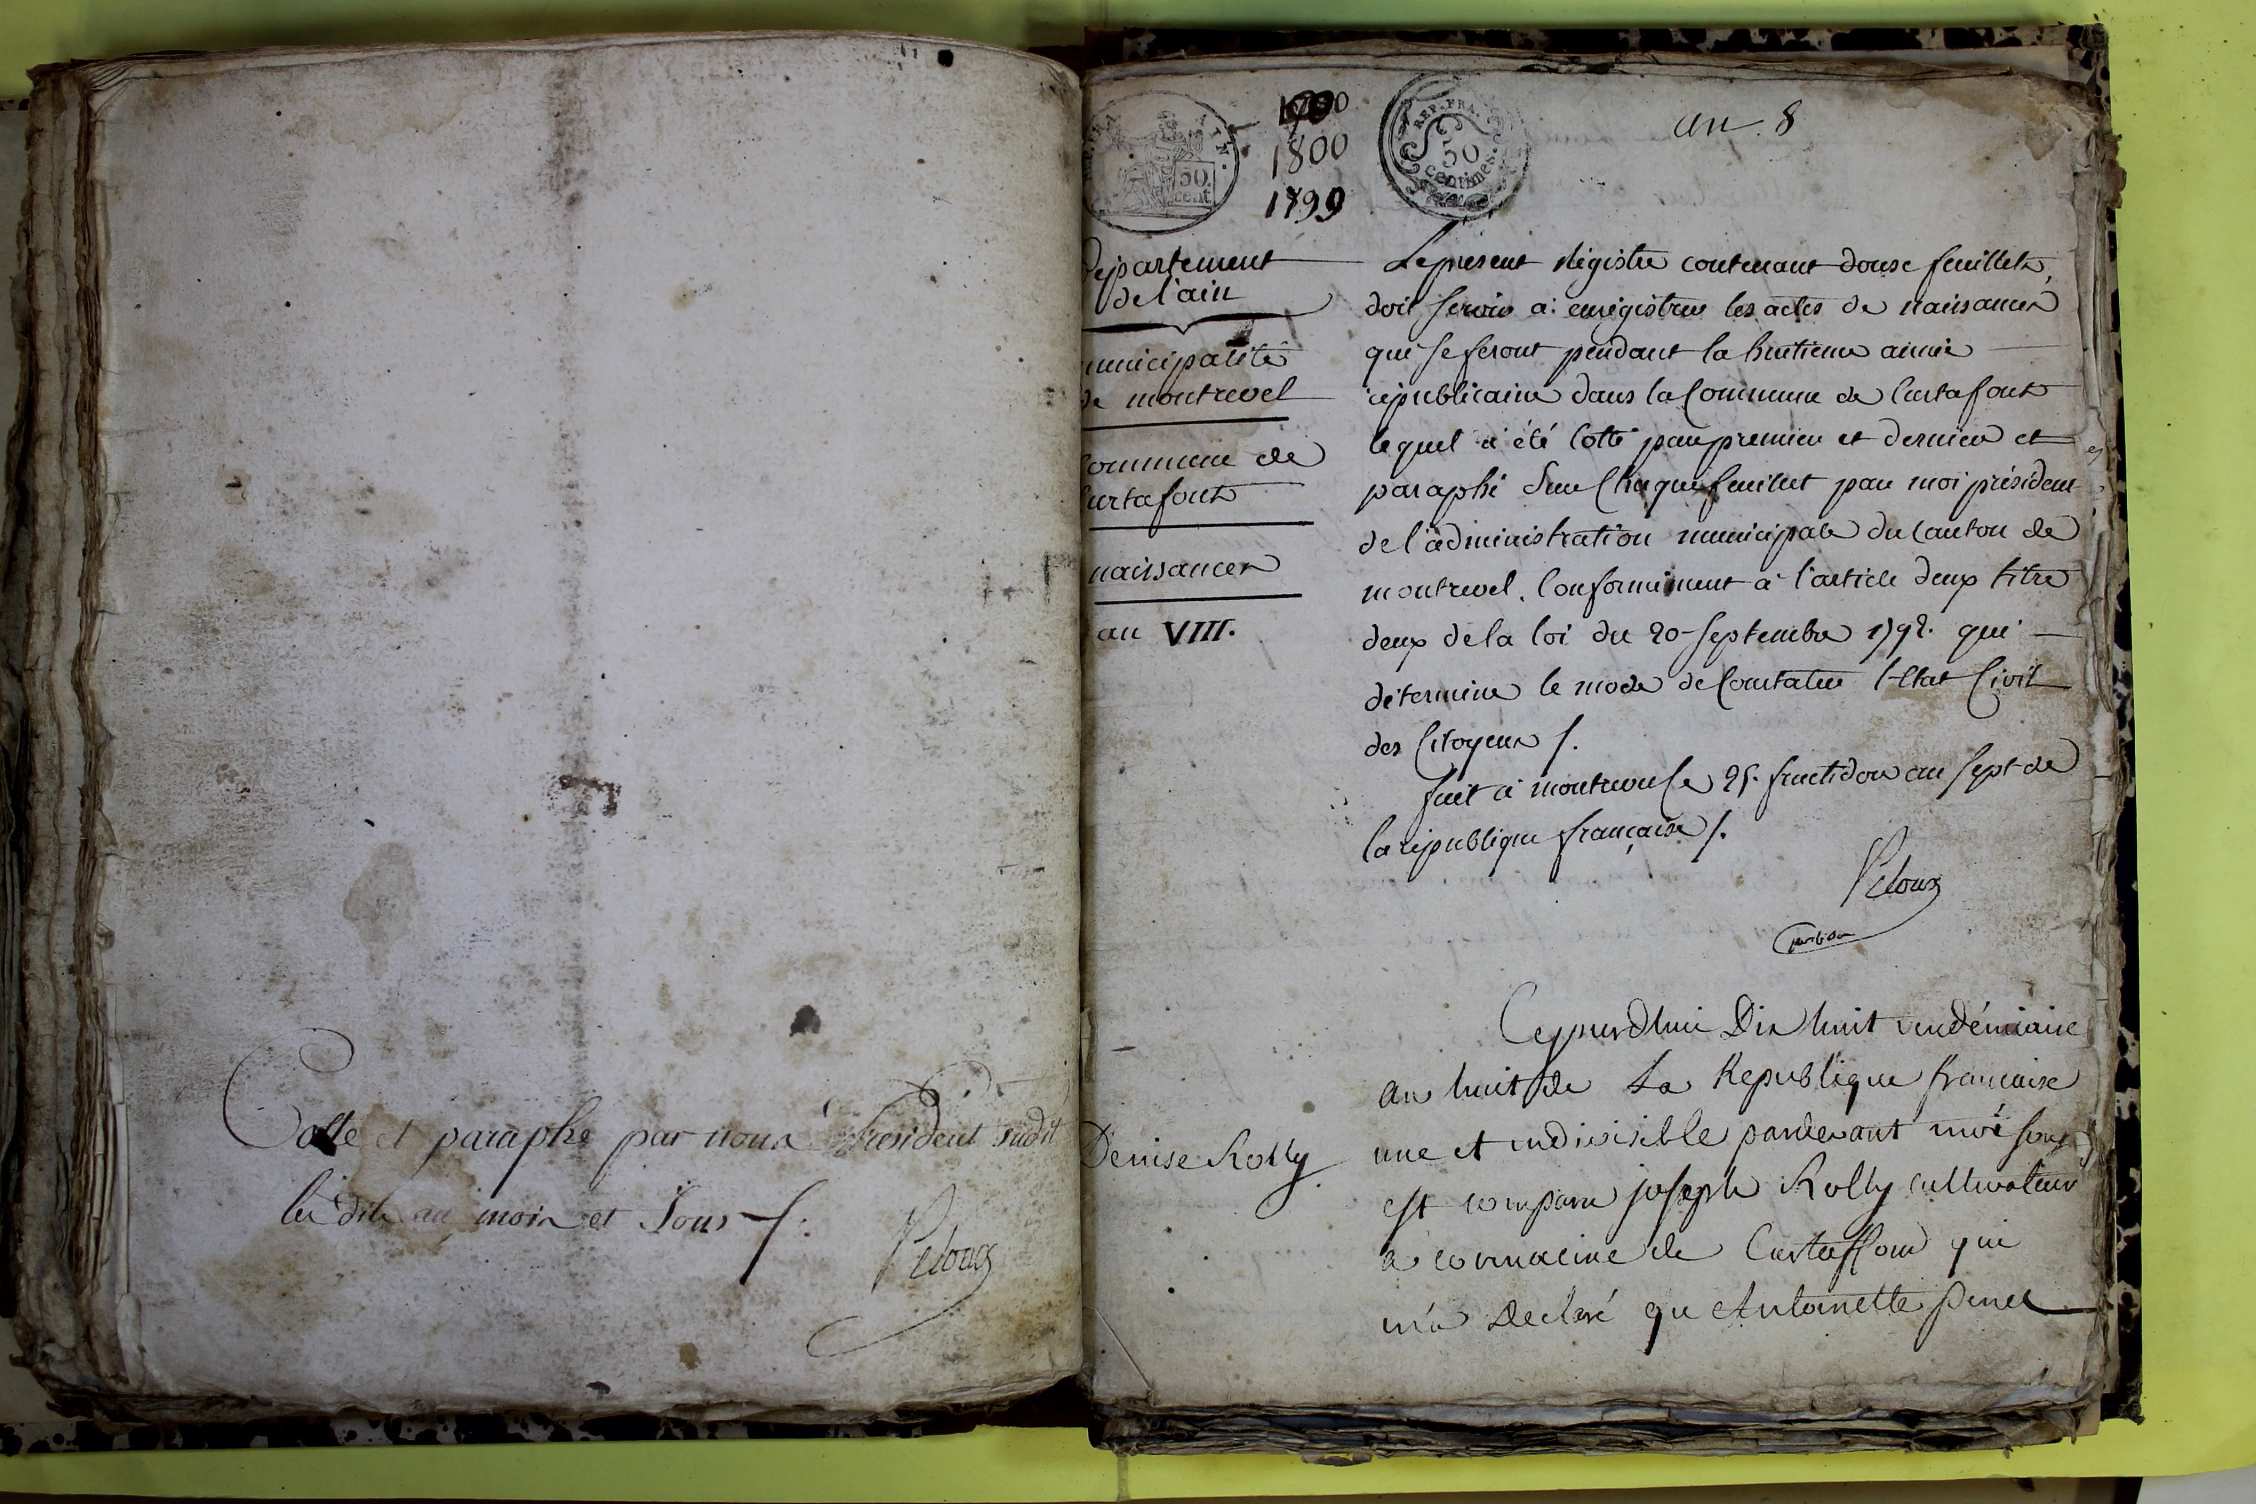 Cotte et paraphé par nous President sudit
les dits an mois et Jour
Peloux
1800
1799
REP. FRA.
50
centimes.
50.
cent.
an. 8
Departement
de l'ain
municipalité
de montrevel
Commune de
Curtafont
naissances
an VIII.
Le present régistre contenant douse feuillets,
doit servir a enregistrer les actes de naissances
qui se feront pendant la huitieme année
republicaine dans la Commune de Curtafont
lequel a été Cotté par premier et dernier et
paraphé sur Chaque feuillet par moi président
de l'administration municipale du Canton de
montrevel. Conformément a l'article deux titre
deux de la loi du 20 septembre 1792. qui
détermine le mode de Constater l'Etat Civil
des Citoyens
fait a montrevel le 25. fructidor an sept de
la république française
Peloux
Cejourdhui Dix huit vendémiaire
an huit de La Republique francaise
une et indivisible pardevant moi
Denise Rolly
est comparu joseph Rolly cultivateur
a cormacine de Curtaffond qui
m'a Declaré que Antoinette penet